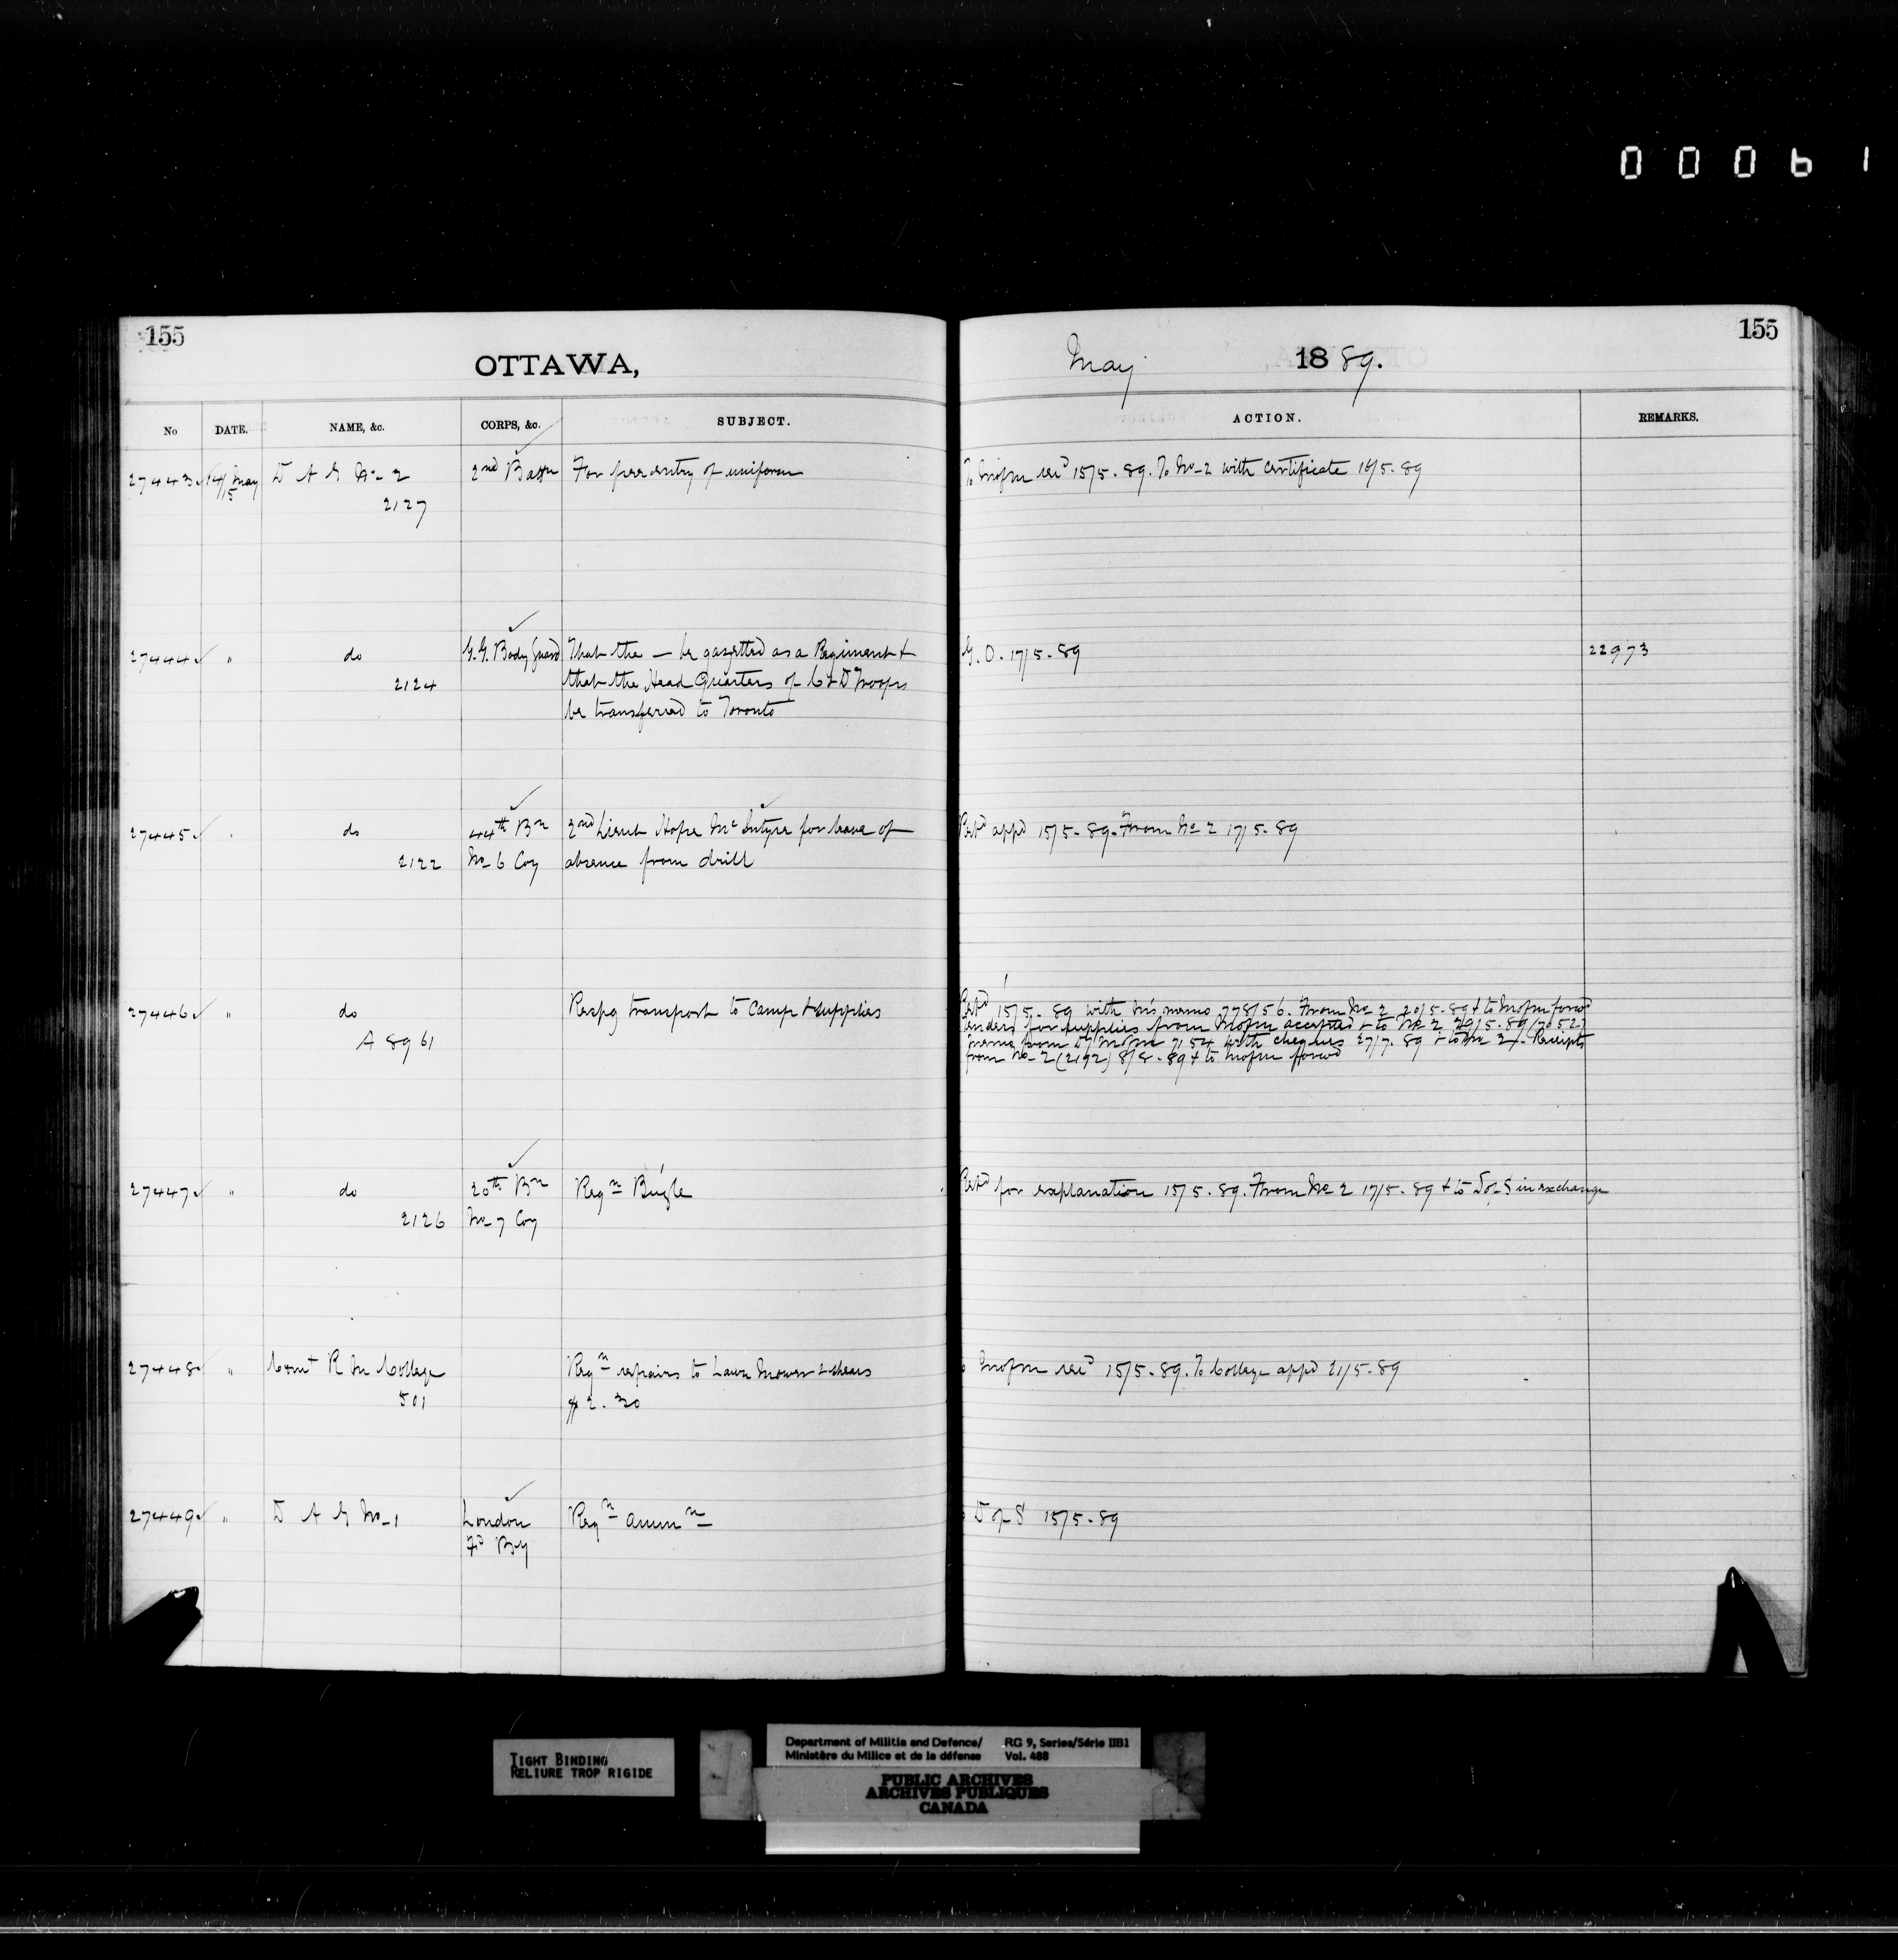 0 0 0 6 1
155
155
OTTAWA,
May 1889.
No DATE. NAME, &c. CORPS, &c. SUBJECT. ACTION. REMARKS.
27443 14/15 May D A G No 2 2nd Battn For free entry of uniform To M of M recd 15/5.89. To No 2 with certificate 16/5.89
2127
27444 " do G.G. Body Guard That the — be gazetted as a Regiment & G.O. 17/5.89 22973
2124 that the Head Quarters of C & D Troops
be transferred to Toronto
27445 " do 44th Bn 2nd Lieut Hope McIntyre for leave of Retd appd 15/5.89. From No 2 17/5.89
2122 No 6 Coy absence from drill
27446 " do Respg transport to Camp & supplies Retd 15/5.89 with memo 778/56. From No 2 20/5.89 & to M of M forwd
A 8961 tenders for supplies from M of M accepted & to No 2 29/5.89 (7052)
memo from M of M 7154 with cheques 27/7.89 & to No 2/. Receipts
from No 2 (2192) 8/8.89 & to M of M forwd
27447 " do 20th Bn Reqn Bugle Retd for explanation 15/5.89. From No 2 17/5.89 & to D of S in exchange
2126 No 7 Coy
27448 " Comt R M College Reqn repairs to Lawn Mower & shears M of M recd 15/5.89. To College appd 21/5.89
501 $2.30
27449 " D A G No 1 London Reqn ammn D of S 15/5.89
Fd By
TIGHT BINDING
RELIURE TROP RIGIDE
Department of Militia and Defence/ RG 9, Series/Série IIB1
Ministère du Milice et de la défense Vol. 488
PUBLIC ARCHIVES
ARCHIVES PUBLIQUES
CANADA